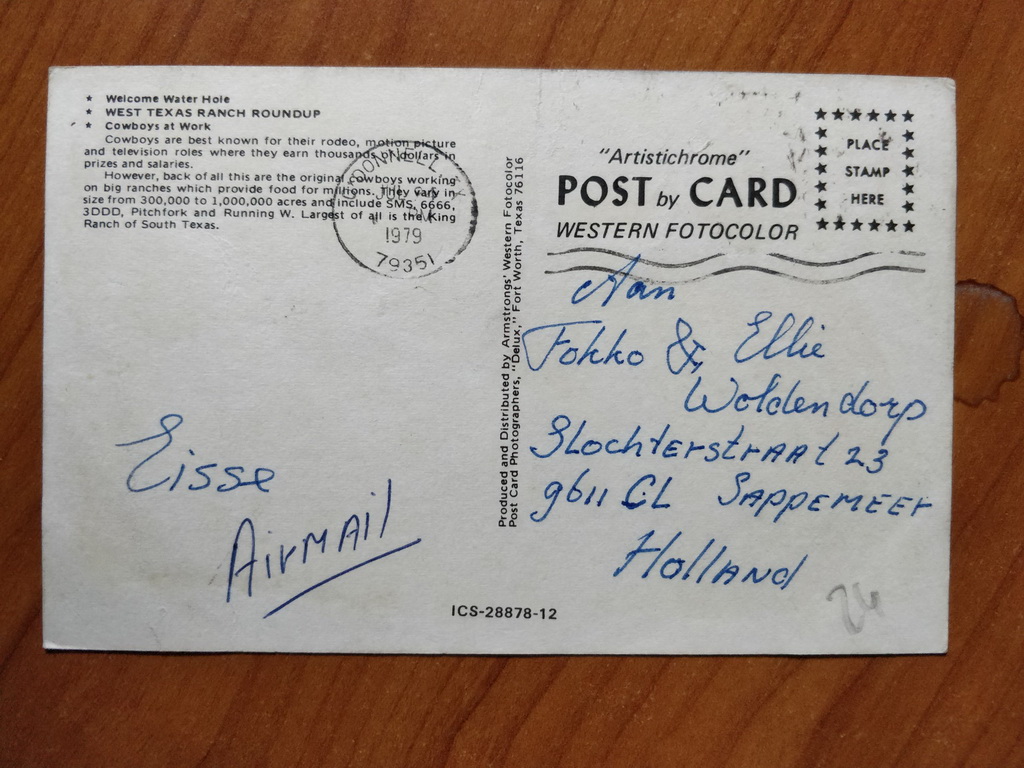 ★ Welcome Water Hole
★ WEST TEXAS RANCH ROUNDUP
★ Cowboys at Work
Cowboys are best known for their rodeo, motion picture
and television roles where they earn thousands of dollars in
prizes and salaries.
However, back of all this are the original cowboys working
on big ranches which provide food for millions. They vary in
size from 300,000 to 1,000,000 acres and include SMS, 6666,
3DDD, Pitchfork and Running W. Largest of all is the King
Ranch of South Texas.
1979
79351
Eisse
AirMAil
Produced and Distributed by Armstrongs' Western Fotocolor
Post Card Photographers, "Delux," Fort Worth, Texas 76116
ICS-28878-12
"Artistichrome"
POST by CARD
WESTERN FOTOCOLOR
PLACE
STAMP
HERE
Aan
Fokko & Ellie
Woldendorp
SLochterstrAAt 23
9611 CL SAppemeer
HollAnd
24